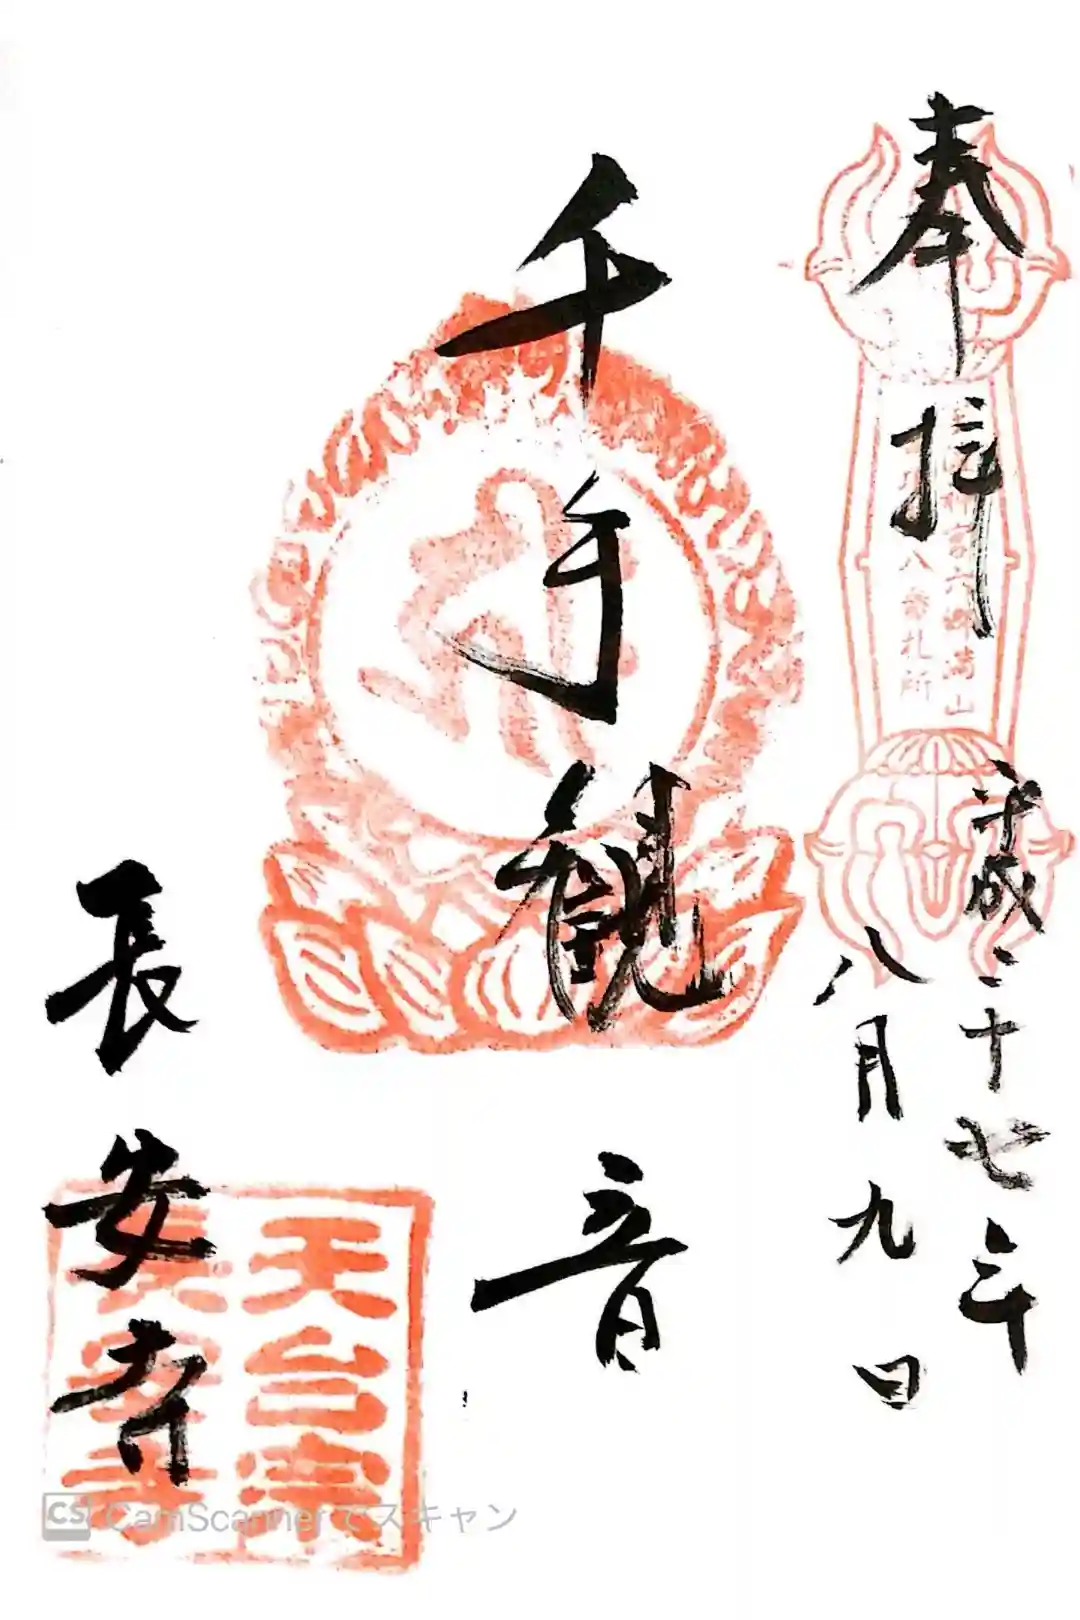 奉拝
六郷満山
八番札所
平成二十七年
八月九日
千手観音
長安寺
天台宗
長安寺
CS CamScannerでスキャン